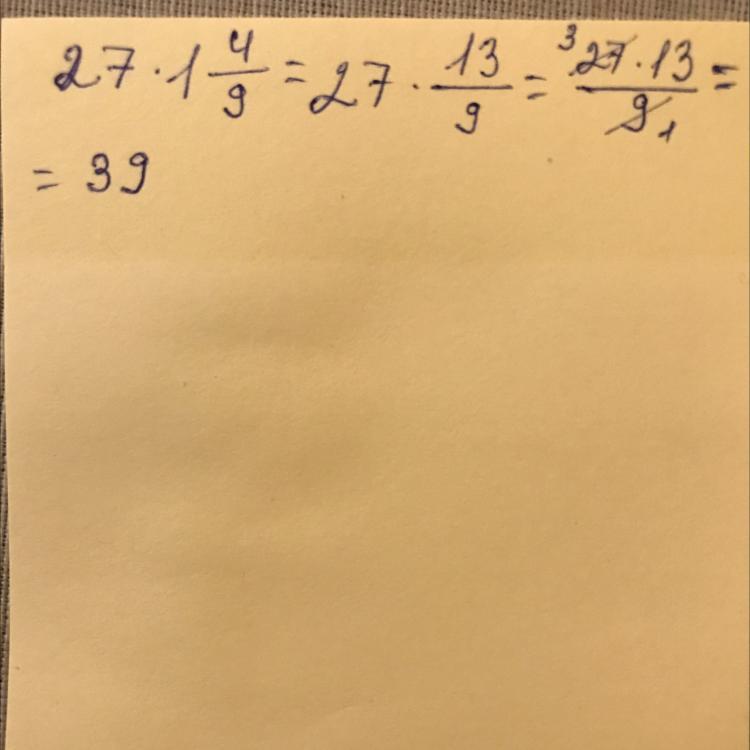 27 · 1 4/9 = 27 · 13/9 = ³27 · 13/9₁ =
= 39